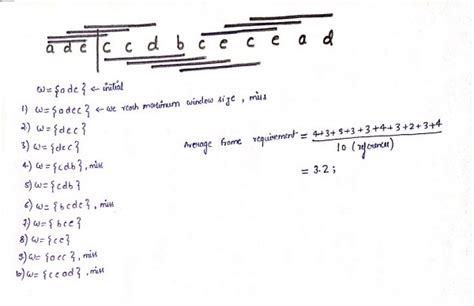 a d e | c c d b c e c e a d
w = {a d e} ← initial
1) w = {a d e c} ← we reach maximum window size, miss
2) w = {d e c}
3) w = {d e c}
4) w = {c d b}, miss
5) w = {c d b}
6) w = {b c d e}, miss
7) w = {b c e}
8) w = {c e}
9) w = {a e c}, miss
10) w = {c e a d}, miss
Average frame requirement = 4+3+3+3+3+4+3+2+3+4
10 (references)
= 3.2;